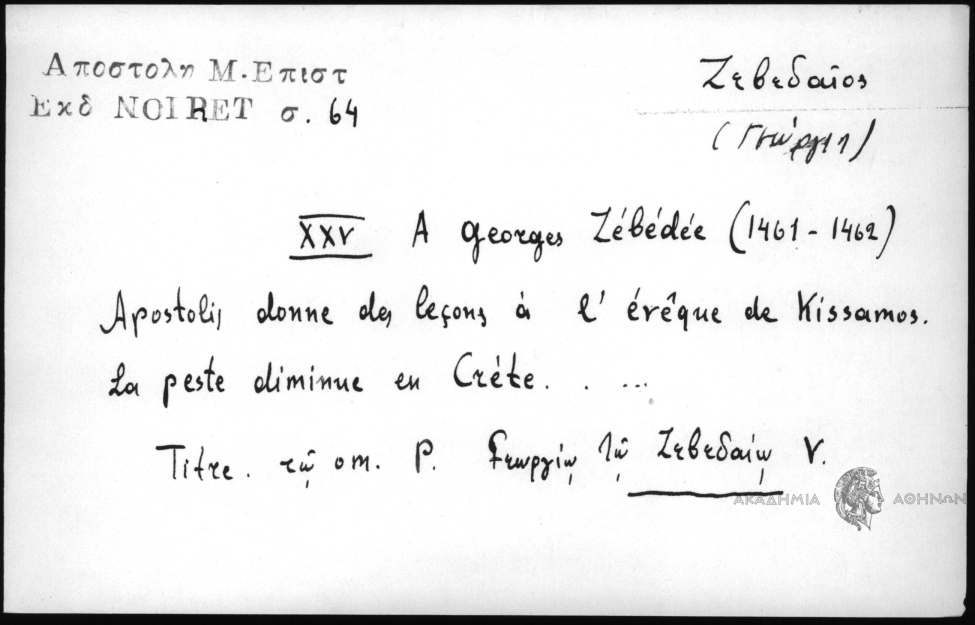 Αποστολη Μ. Επιστ
Εκδ NOIRET σ. 64
Ζεβεδαῖος
(Γεώργιι)
XXV A Georges Zébédée (1461 - 1462)
Apostolis donne des leçons à l' évêque de Kissamos.
La peste diminue en Crète. . ...
Titre. τῷ om. P. Γεωργίῳ τῷ Ζεβεδαίῳ V.
ΑΚΑΔΗΜΙΑ ΑΘΗΝΩΝ